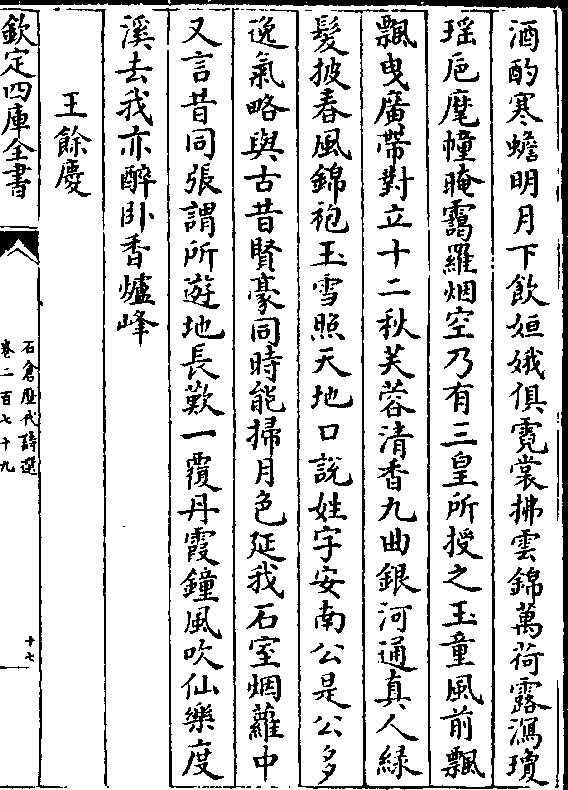 酒酌寒蟾明月下飲姮娥俱霓裳拂雲錦萬荷露瀉瓊
瑶巵麾幢晻靄羅烟空乃有三皇所授之玉童風前飄
飄曳廣帶對立十二秋芙蓉清香九曲銀河通真人緑
髮披春風錦袍玉雪照天地口說姓字安南公是公多
逸氣略與古昔賢豪同時能掃月色延我石室烟蘿中
又言昔同張謂所遊地長歎一覆丹霞鐘風吹仙樂度
溪去我亦醉卧香爐峰
王餘慶
欽定四庫全書
石倉歴代詩選
卷二百七十九
十七